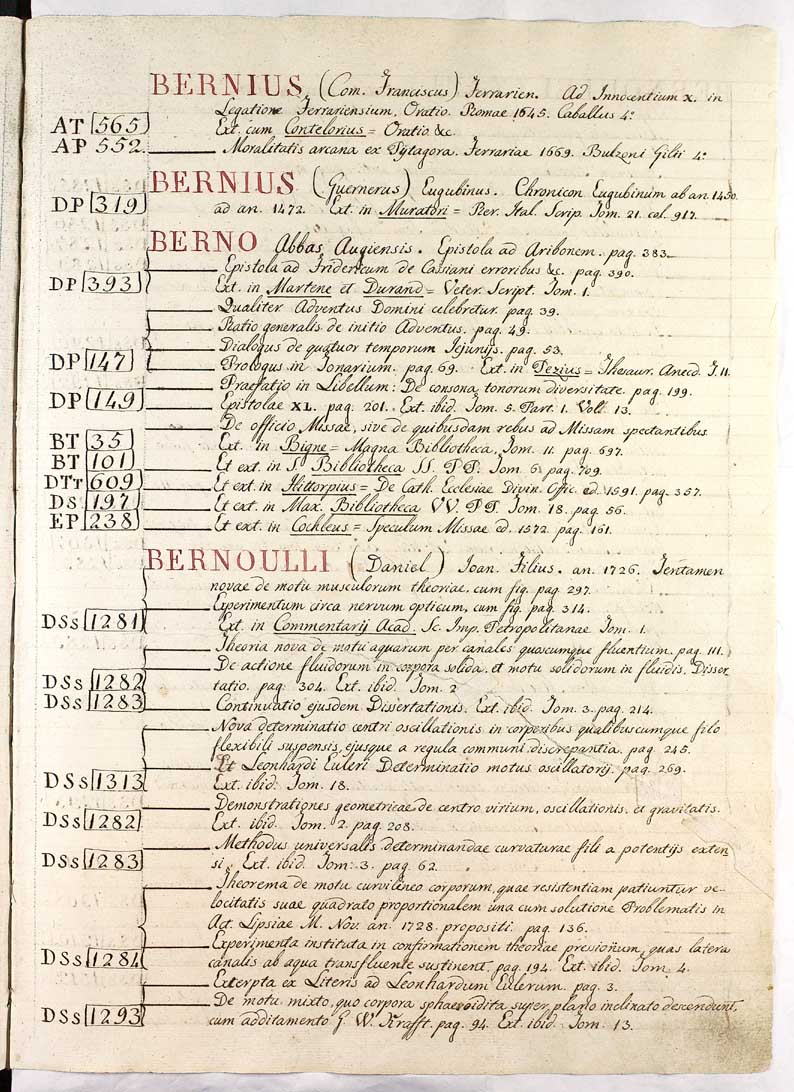 BERNIUS (Com. Franciscus) Ferrarien. Ad Innocentium X. in
Legatione Ferrariensium. Oratio. Romae 1645. Caballus 4º
AT 565 Ext. cum Contelorius = Oratio &c.
AP 552. Moralitatis arcana ex Pytagora. Ferrariae 1669. Bulzoni Gilii 4º
BERNIUS (Guernerus) Eugubinus. Chronicon Eugubinum ab an. 1350.
DP 319 ad an. 1472. Ext. in Muratori = Rer. Ital. Scrip. Tom. 21. col. 917.
BERNO Abbas Augiensis. Epistola ad Aribonem. pag. 383.
Epistola ad Fridericum de Cassiani erroribus &c. pag. 390.
DP 393 Ext. in Martene et Durand = Veter. Script. Tom. 1.
Qualiter Adventus Domini celebretur. pag. 39.
Ratio generalis de initio Adventus. pag. 49.
Dialogus de quatuor temporum Jejunijs. pag. 53.
DP 147 Prologus in Tonarium. pag. 69. Ext. in Pezius = Thesaur. Anecd. T. 11.
Praefatio in Libellum: De consona tonorum diversitate. pag. 199.
DP 149 Epistolae XL. pag. 201. Ext. ibid. Tom. 5. Part. 1. Voll. 13.
De officio Missae, sive de quibusdam rebus ad Missam spectantibus
BT 35 Ext. in Bigne = Magna Bibliotheca. Tom. 11. pag. 697.
BT 101 Et ext. in S. Bibliotheca SS. PP. Tom. 6. pag. 709.
DTt 609 Et ext. in Hittorpius = De Cath. Ecclesiae Divin. Offic. ed. 1591. pag. 357.
DS 197 Et ext. in Max. Bibliotheca VV. PP. Tom. 18. pag. 56.
EP 238 Et ext. in Cochleus = Speculum Missae ed. 1572. pag. 161.
BERNOULLI (Daniel) Ioan. Filius. an. 1726. Tentamen
novae de motu musculorum theoriae, cum fig. pag. 297.
Experimentum circa nervum opticum, cum fig. pag. 314.
DSs 1281 Ext. in Commentarij Acad. Sc. Imp. Petropolitanae Tom. 1.
Theoria nova de motu aquarum per canales quoscumque fluentium. pag. 111.
De actione fluidorum in corpora solida, et motu solidorum in fluidis. Disser
DSs 1282 tatio. pag. 304. Ext. ibid. Tom. 2
DSs 1283 Continuatio ejusdem Dissertationis. Ext. ibid. Tom. 3. pag. 214.
Nova determinatio centri oscillationis in corporibus qualibuscumque filo
flexibili suspensis, ejusque a regula communi discrepantia. pag. 245.
Et Leonhardi Euleri Determinatio motus oscillatorij. pag. 269.
DSs 1313 Ext. ibid. Tom. 18.
Demonstrationes geometricae de centro virium, oscillationis, et gravitatis.
DSs 1282 Ext. ibid. Tom. 2. pag. 208.
Methodus universalis determinandae curvaturae fili a potentijs exten
DSs 1283 si. Ext. ibid. Tom. 3. pag. 62.
Theorema de motu curvilineo corporum, quae resistentiam patiuntur ve-
locitatis suae quadrato proportionalem una cum solutione Problematis in
Act. Lipsiae M. Nov. an. 1728. propositi. pag. 136.
Experimenta instituta in confirmationem theoriae pressionum, quas latera
DSs 1284 canalis ab aqua transfluente sustinent. pag. 194. Ext. ibid. Tom. 4.
Exterpta ex Literis ad Leonhardum Eulerum. pag. 3.
De motu mixto, quo corpora sphaeroidita super plano inclinato descendunt,
DSs 1293 cum additamento G. W. Krafft. pag. 94. Ext. ibid. Tom. 13.